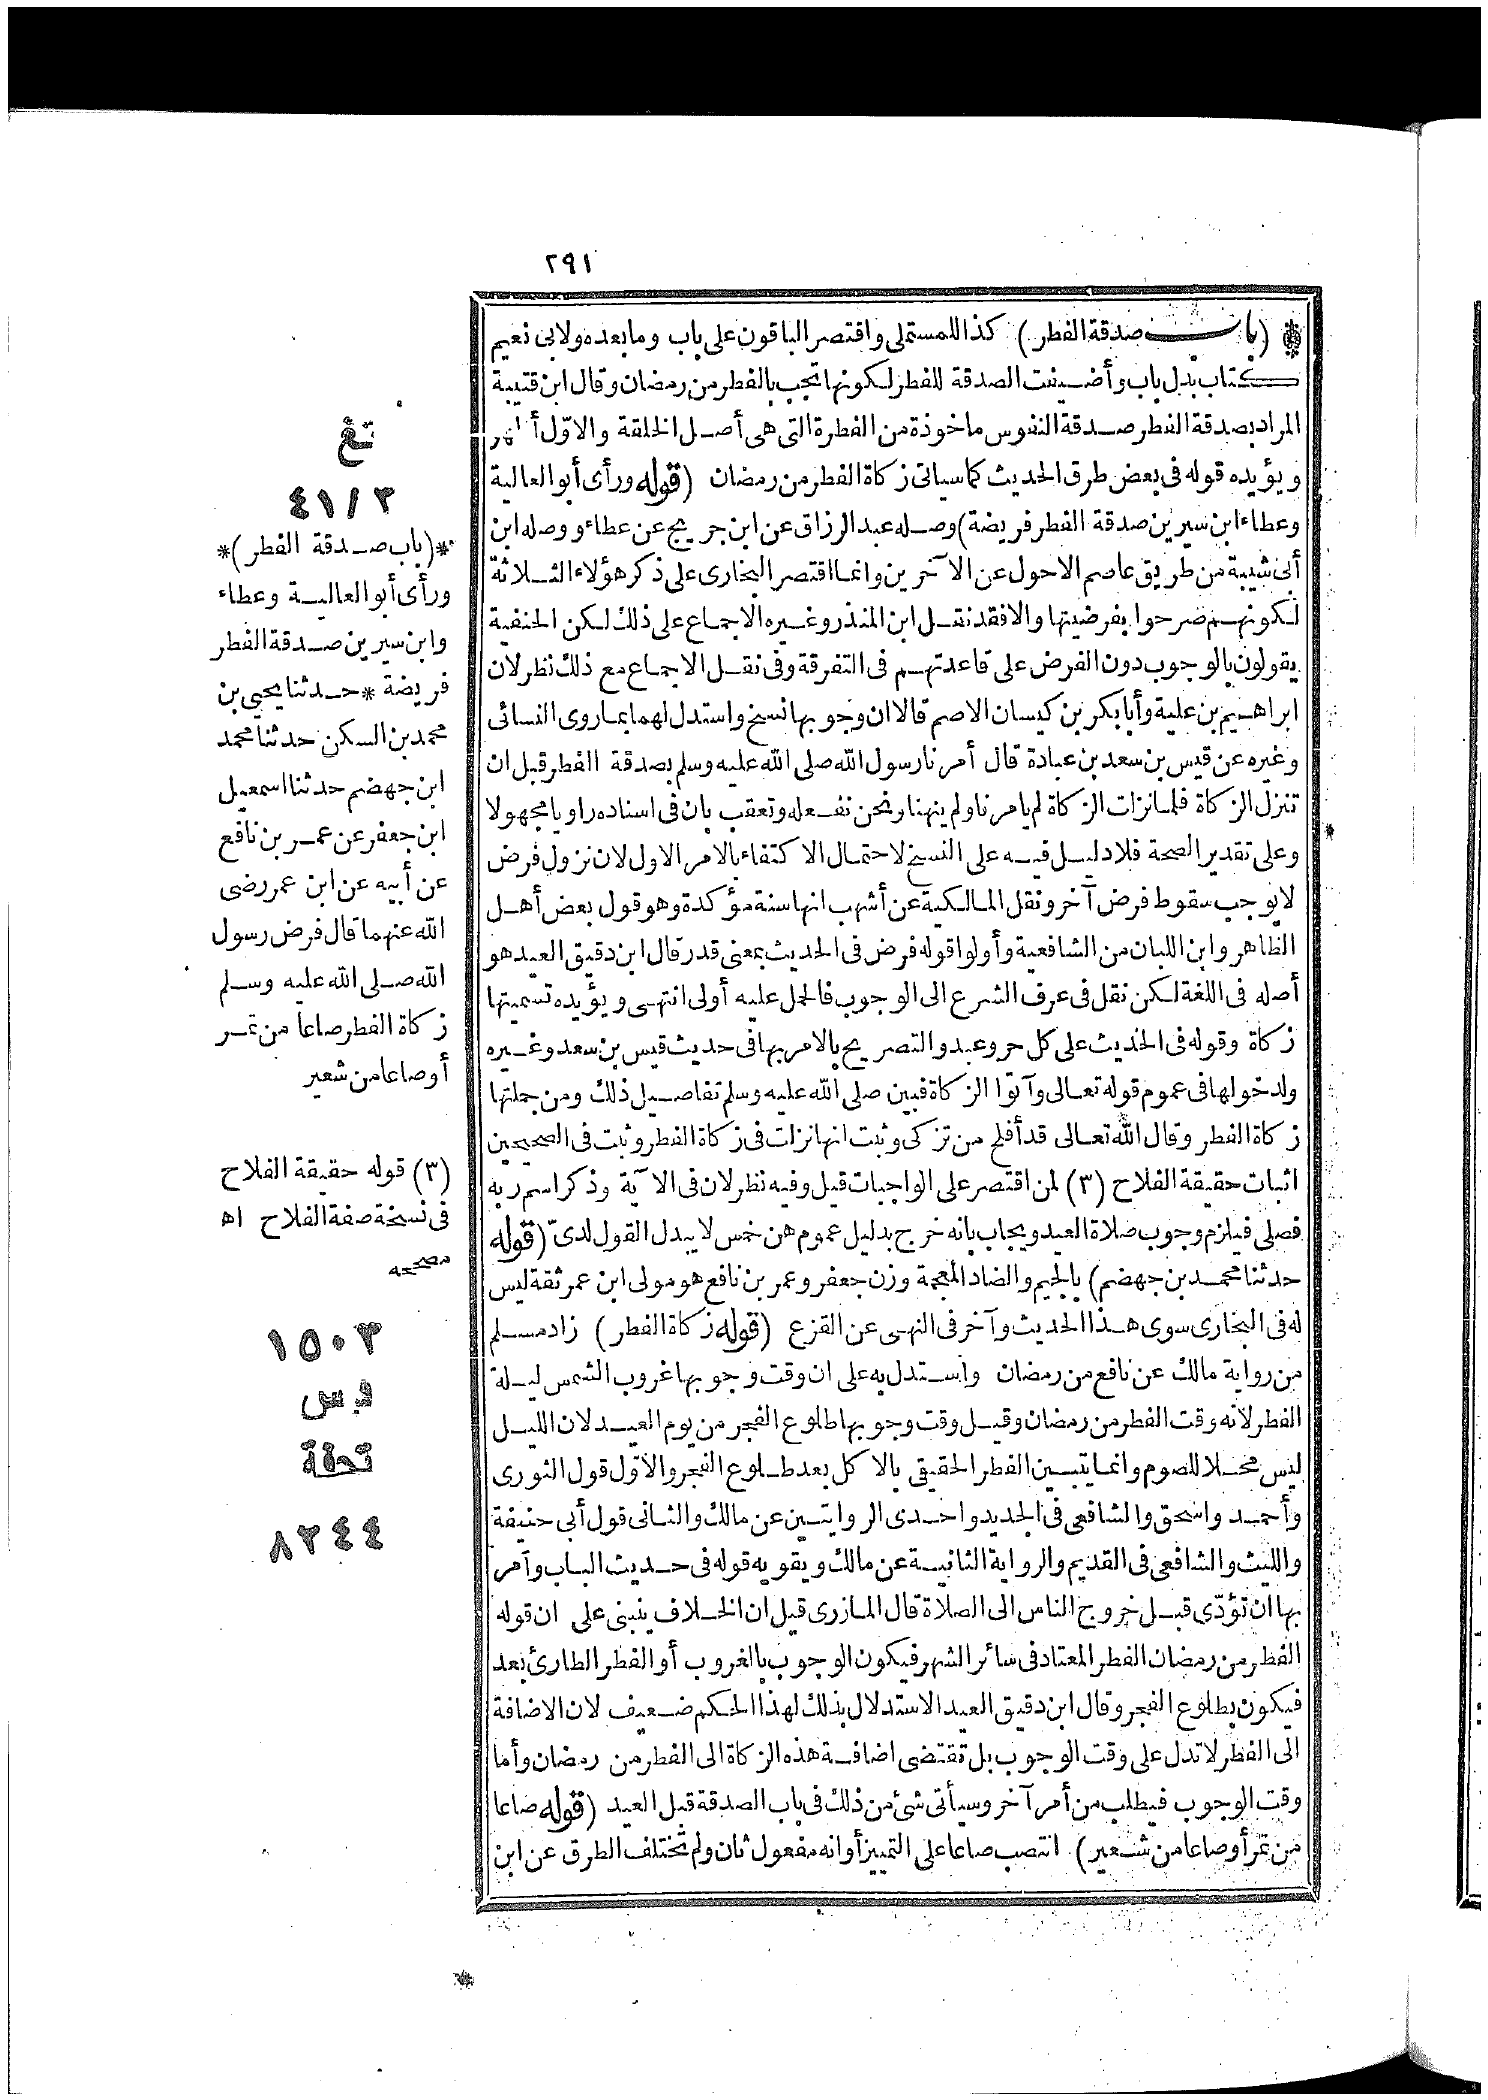 ٢٩١
(باب صدقة الفطر) كذا للمستملى واقتصر الباقون على باب وما بعده ولابى نعيم
كتاب بدل باب وأضيفت الصدقة للفطر لكونها تجب بالفطر من رمضان وقال ابن قتيبة
المراد بصدقة الفطر صدقة النفوس ماخوذة من الفطرة التى هى أصل الخلقة والاوّل أظهر
ويؤيده قوله فى بعض طرق الحديث كما سياتى زكاة الفطر من رمضان (قوله ورأى أبو العالية
وعطاء ابن سيرين صدقة الفطر فريضة) وصله عبد الرزاق عن ابن جريج عن عطاء ووصله ابن
أبى شيبة من طريق عاصم الاحول عن الآخرين وانما اقتصر البخارى على ذكر هؤلاء الثلاثة
لكونهم صرحوا بفرضيتها والا فقد نقل ابن المنذر وغيره الاجماع على ذلك لكن الحنفية
يقولون بالوجوب دون الفرض على قاعدتهم فى التفرقة وفى نقل الاجماع مع ذلك نظر لان
ابراهيم بن علية وأبا بكر بن كيسان الاصم قالا ان وجوبها نسخ واستدل لهما بما روى النسائى
وغيره عن قيس بن سعد بن عبادة قال أمرنا رسول الله صلى الله عليه وسلم بصدقة الفطر قبل ان
تنزل الزكاة فلما نزلت الزكاة لم يامرنا ولم ينهنا ونحن نفعله وتعقب بان فى اسناده راويا مجهولا
وعلى تقدير الصحة فلا دليل فيه على النسخ لاحتمال الاكتفاء بالامر الاول لان نزول فرض
لا يوجب سقوط فرض آخر ونقل المالكية عن أشهب انها سنة مؤكدة وهو قول بعض أهل
الظاهر وابن اللبان من الشافعية وأولوا قوله فرض فى الحديث بمعنى قدر قال ابن دقيق العيد هو
أصله فى اللغة لكن نقل فى عرف الشرع الى الوجوب فالحمل عليه أولى انتهى ويؤيده تسميتها
زكاة وقوله فى الحديث على كل حر وعبد والتصريح بالامر بها فى حديث قيس بن سعد وغيره
ولدخولها فى عموم قوله تعالى وآتوا الزكاة فبين صلى الله عليه وسلم تفاصيل ذلك ومن جملتها
زكاة الفطر وقال الله تعالى قد أفلح من تزكى وثبت انها نزلت فى زكاة الفطر وثبت فى الصحيحين
اثبات حقيقة الفلاح (٣) لمن اقتصر على الواجبات قيل وفيه نظر لان فى الآية وذكر اسم ربه
فصلى فيلزم وجوب صلاة العيد ويجاب بانه خرج بدليل عموم هن خمس لا يبدل القول لدىّ (قوله
حدثنا محمد بن جهضم) بالجيم والضاد المعجمة وزن جعفر وعمر بن نافع هو مولى ابن عمر ثقة ليس
له فى البخارى سوى هذا الحديث وآخر فى النهى عن القزع (قوله زكاة الفطر) زاد مسلم
من رواية مالك عن نافع من رمضان واستدل به على ان وقت وجوبها غروب الشمس ليلة
الفطر لانه وقت الفطر من رمضان وقيل وقت وجوبها طلوع الفجر من يوم العيد لان الليل
ليس محلا للصوم وانما يتبين الفطر الحقيقى بالاكل بعد طلوع الفجر والاوّل قول الثورى
وأحمد واسحق والشافعى فى الجديد واحدى الروايتين عن مالك والثانى قول أبى حنيفة
والليث والشافعى فى القديم والرواية الثانية عن مالك ويقويه قوله فى حديث الباب وأمر
بها ان تؤدّى قبل خروج الناس الى الصلاة قال المازرى قيل ان الخلاف ينبنى على ان قوله
الفطر من رمضان الفطر المعتاد فى سائر الشهر فيكون الوجوب بالغروب أو الفطر الطارئ بعد
فيكون بطلوع الفجر وقال ابن دقيق العيد الاستدلال بذلك لهذا الحكم ضعيف لان الاضافة
الى الفطر لا تدل على وقت الوجوب بل تقتضى اضافة هذه الزكاة الى الفطر من رمضان وأما
وقت الوجوب فيطلب من أمر آخر وسيأتى شئ من ذلك فى باب الصدقة قبل العيد (قوله صاعا
من تمر أو صاعا من شعير) انتصب صاعا على التمييز أو انه مفعول ثان ولم تختلف الطرق عن ابن
تغ
٤١/٣
*(باب صدقة الفطر)*
ورأى أبو العالية وعطاء
وابن سيرين صدقة الفطر
فريضة * حدثنا يحيى بن
محمد بن السكن حدثنا محمد
ابن جهضم حدثنا اسمعيل
ابن جعفر عن عمر بن نافع
عن أبيه عن ابن عمر رضى
الله عنهما قال فرض رسول
الله صلى الله عليه وسلم
زكاة الفطر صاعا من تمر
أو صاعا من شعير
(٣) قوله حقيقة الفلاح
فى نسخة صفة الفلاح اه
مصححه
١٥٠٣
د س
تحفة
٨٢٤٤